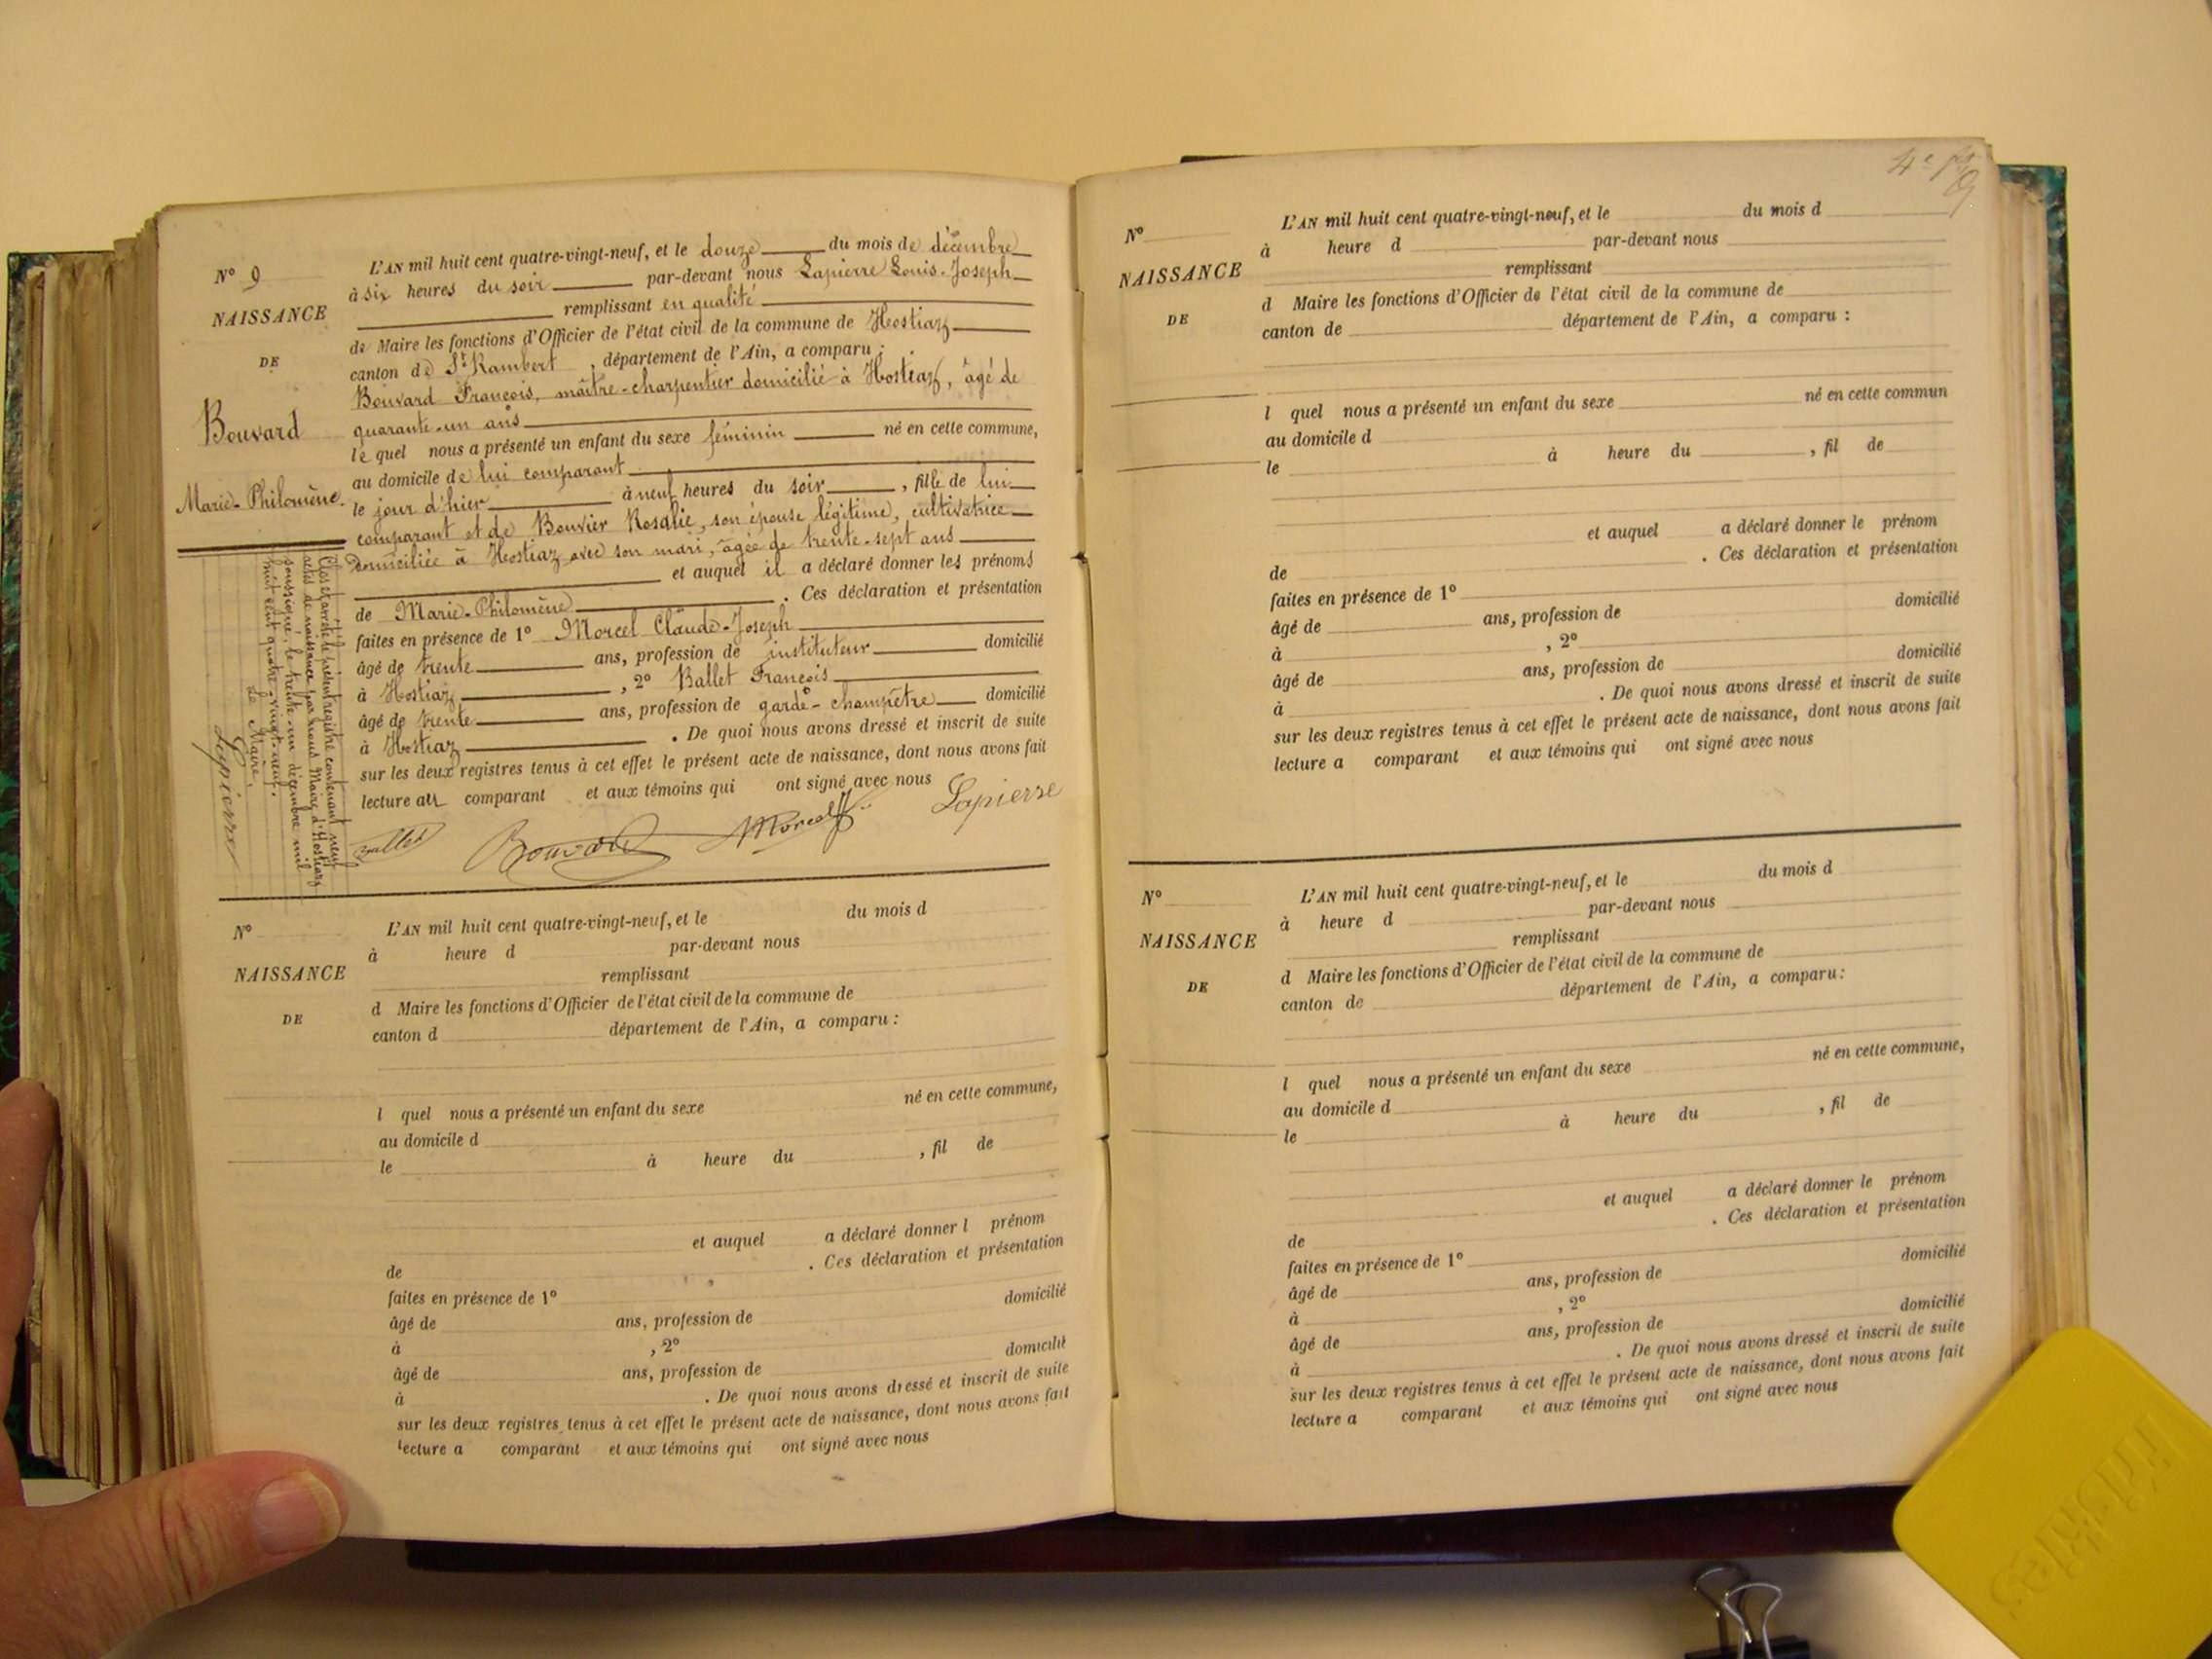 N° 9
NAISSANCE
DE
Bouvard
Marie-Philomène.
L'AN mil huit cent quatre-vingt-neuf, et le douze du mois de décembre
à six heures du soir par-devant nous Lapierre Louis-Joseph
remplissant en qualité
de Maire les fonctions d'Officier de l'état civil de la commune de Hostiaz
canton de St Rambert, département de l'Ain, a comparu :
Bouvard François, maître-charpentier domicilié à Hostiaz, âgé de
quarante-un ans
le quel nous a présenté un enfant du sexe féminin né en cette commune,
au domicile de lui comparant
le jour d'hier à neuf heures du soir, fille de lui
comparant et de Bouvier Rosalie, son épouse légitime, cultivatrice
domiciliée à Hostiaz avec son mari, âgée de trente-sept ans
et auquel il a déclaré donner les prénoms
de Marie-Philomène. Ces déclaration et présentation
faites en présence de 1° Morcel Claude-Joseph
âgé de trente ans, profession de instituteur domicilié
à Hostiaz, 2° Ballet François
âgé de trente ans, profession de garde-champêtre domicilié
à Hostiaz. De quoi nous avons dressé et inscrit de suite
sur les deux registres tenus à cet effet le présent acte de naissance, dont nous avons fait
lecture au comparant et aux témoins qui ont signé avec nous
Ballet Bouvard Morcel Lapierre
Clos et arrêté le présent registre contenant neuf
actes de naissance par nous Maire d'Hostiaz
soussigné, le trente-un décembre mil
huit cent quatre-vingt-neuf.
Le Maire,
Lapierre
N°
NAISSANCE
DE
L'AN mil huit cent quatre-vingt-neuf, et le du mois d
à heure d par-devant nous
remplissant
d Maire les fonctions d'Officier de l'état civil de la commune de
canton d département de l'Ain, a comparu :
l quel nous a présenté un enfant du sexe né en cette commune,
au domicile d
le à heure du , fil de
et auquel a déclaré donner l prénom
de . Ces déclaration et présentation
faites en présence de 1°
âgé de ans, profession de domicilié
à , 2°
âgé de ans, profession de domicilié
à . De quoi nous avons dressé et inscrit de suite
sur les deux registres tenus à cet effet le présent acte de naissance, dont nous avons fait
lecture a comparant et aux témoins qui ont signé avec nous
4e
N°
NAISSANCE
DE
L'AN mil huit cent quatre-vingt-neuf, et le du mois d
à heure d par-devant nous
remplissant
d Maire les fonctions d'Officier de l'état civil de la commune de
canton de département de l'Ain, a comparu :
l quel nous a présenté un enfant du sexe né en cette commun
au domicile d
le à heure du , fil de
et auquel a déclaré donner le prénom
de . Ces déclaration et présentation
faites en présence de 1°
âgé de ans, profession de domicilié
à , 2°
âgé de ans, profession de domicilié
à . De quoi nous avons dressé et inscrit de suite
sur les deux registres tenus à cet effet le présent acte de naissance, dont nous avons fait
lecture a comparant et aux témoins qui ont signé avec nous
N°
NAISSANCE
DE
L'AN mil huit cent quatre-vingt-neuf, et le du mois d
à heure d par-devant nous
remplissant
d Maire les fonctions d'Officier de l'état civil de la commune de
canton de département de l'Ain, a comparu :
l quel nous a présenté un enfant du sexe né en cette commune,
au domicile d
le à heure du , fil de
et auquel a déclaré donner le prénom
de . Ces déclaration et présentation
faites en présence de 1°
âgé de ans, profession de domicilié
à , 2°
âgé de ans, profession de domicilié
à . De quoi nous avons dressé et inscrit de suite
sur les deux registres tenus à cet effet le présent acte de naissance, dont nous avons fait
lecture a comparant et aux témoins qui ont signé avec nous
Friskies